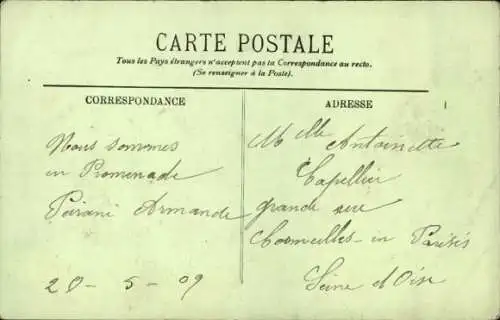 CARTE POSTALE
Tous les Pays étrangers n'acceptent pas la Correspondance au recto.
(Se renseigner à la Poste).
CORRESPONDANCE
Nous sommes
en Promenade
Armande
20 - 5 - 09
ADRESSE
Melle Antoinette
Capellier
grande rue
Cormeilles - in Parisis
Seine d'Oise